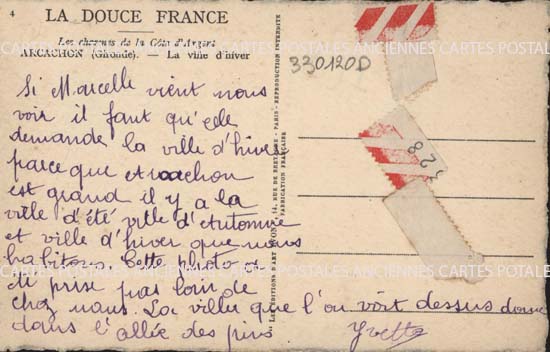 4 LA DOUCE FRANCE
Les charmes de la Côte d'Argent
ARCACHON (Gironde). — La ville d'hiver
Si Marcelle vient nous
voir il faut qu'elle
demande la ville d'hiver
parce que Arcachon
est grand il y a la
ville d'été ville d'Automne
et ville d'hiver que nous
habitons. Cette photo a
été prise pas loin de
chez nous. La villa que l'on voit dessus donne
dans l'allée des pins
Yvette
330120D
28
LES ÉDITIONS D'ART YVON, RUE DE BRETAGNE - PARIS - REPRODUCTION INTERDITE
FABRICATION FRANÇAISE
CARTES POSTALES ANCIENNES CARTES POSTALES ANCIENNES CARTES POSTALES
CARTES POSTALES ANCIENNES CARTES POSTALES ANCIENNES CARTES POSTALES